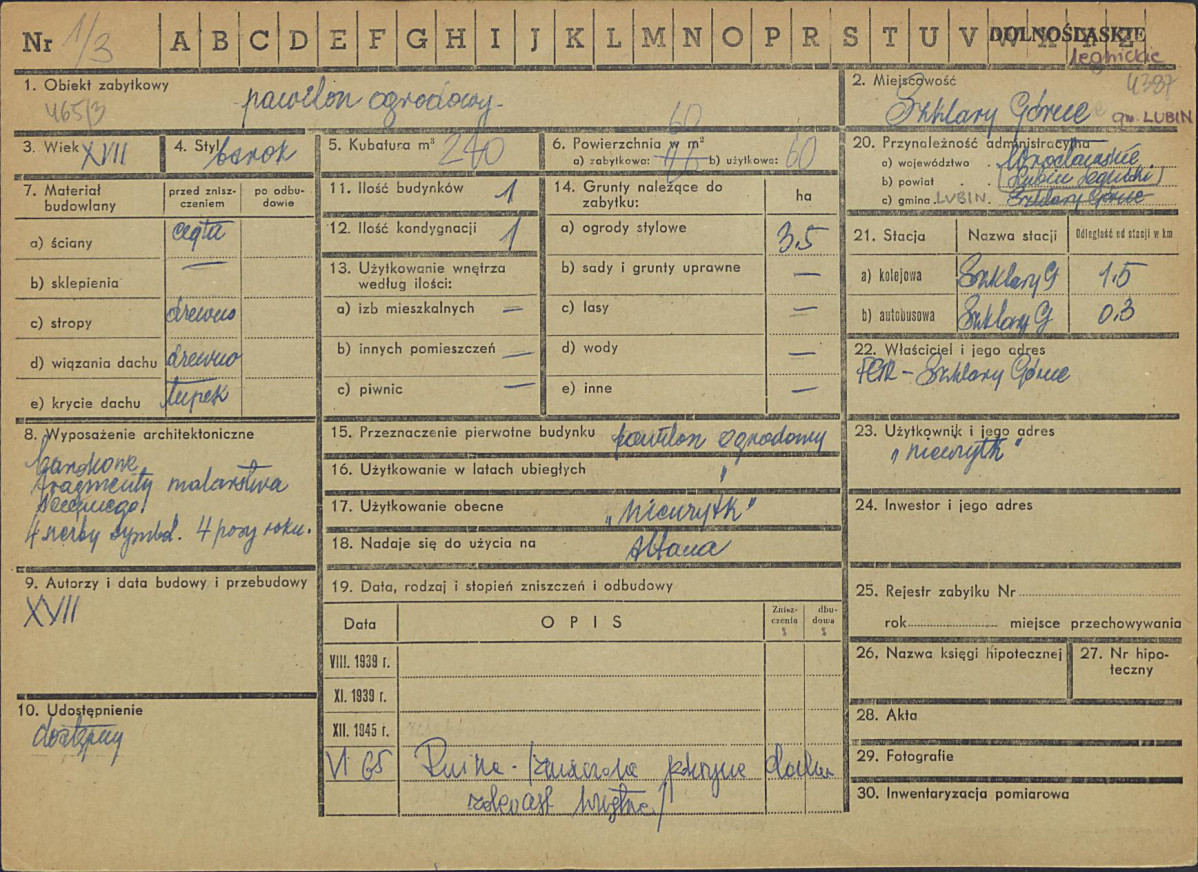 Nr 1/3 A B C D E F G H I J K L M N O P R S T U V W X Y Z DOLNOŚLĄSKIE
legnickie
1. Obiekt zabytkowy
465/3
pawilon ogrodowy
2. Miejscowość 4387
Szklary Górne gm. LUBIN
3. Wiek XVII
4. Styl barok
5. Kubatura m³ 240
6. Powierzchnia w m²
60
a) zabytkowa: b) użytkowa: 60
7. Materiał budowlany
przed zniszczeniem
po odbudowie
a) ściany cegła
b) sklepienia —
c) stropy drewno
d) wiązania dachu drewno
e) krycie dachu łupek
8. Wyposażenie architektoniczne
fragmenty malarstwa
4 pory roku.
9. Autorzy i data budowy i przebudowy
XVII
10. Udostępnienie
dostępny
11. Ilość budynków 1
12. Ilość kondygnacji 1
13. Użytkowanie wnętrza
według ilości:
a) izb mieszkalnych —
b) innych pomieszczeń —
c) piwnic —
14. Grunty należące do
zabytku:
ha
a) ogrody stylowe 3,5
b) sady i grunty uprawne —
c) lasy —
d) wody —
e) inne —
15. Przeznaczenie pierwotne budynku pawilon ogrodowy
16. Użytkowanie w latach ubiegłych "
17. Użytkowanie obecne „nieużytk"
18. Nadaje się do użycia na Altana
19. Data, rodzaj i stopień zniszczeń i odbudowy
Data
OPIS
Zniszczenia %
dbudowa %
VIII. 1939 r.
XI. 1939 r.
XII. 1945 r.
VI 65 Ruina
20. Przynależność administracyjna
a) województwo Wrocławskie
b) powiat Lubin Legnicki
c) gmina LUBIN Szklary Górne
21. Stacja
Nazwa stacji
Odległość od stacji w km
a) kolejowa Szklary G 1,5
b) autobusowa Szklary G 0,3
22. Właściciel i jego adres
PGR - Szklary Górne
23. Użytkownik i jego adres
„nieużytk"
24. Inwestor i jego adres
25. Rejestr zabytku Nr
rok miejsce przechowywania
26. Nazwa księgi hipotecznej
27. Nr hipoteczny
28. Akta
29. Fotografie
30. Inwentaryzacja pomiarowa